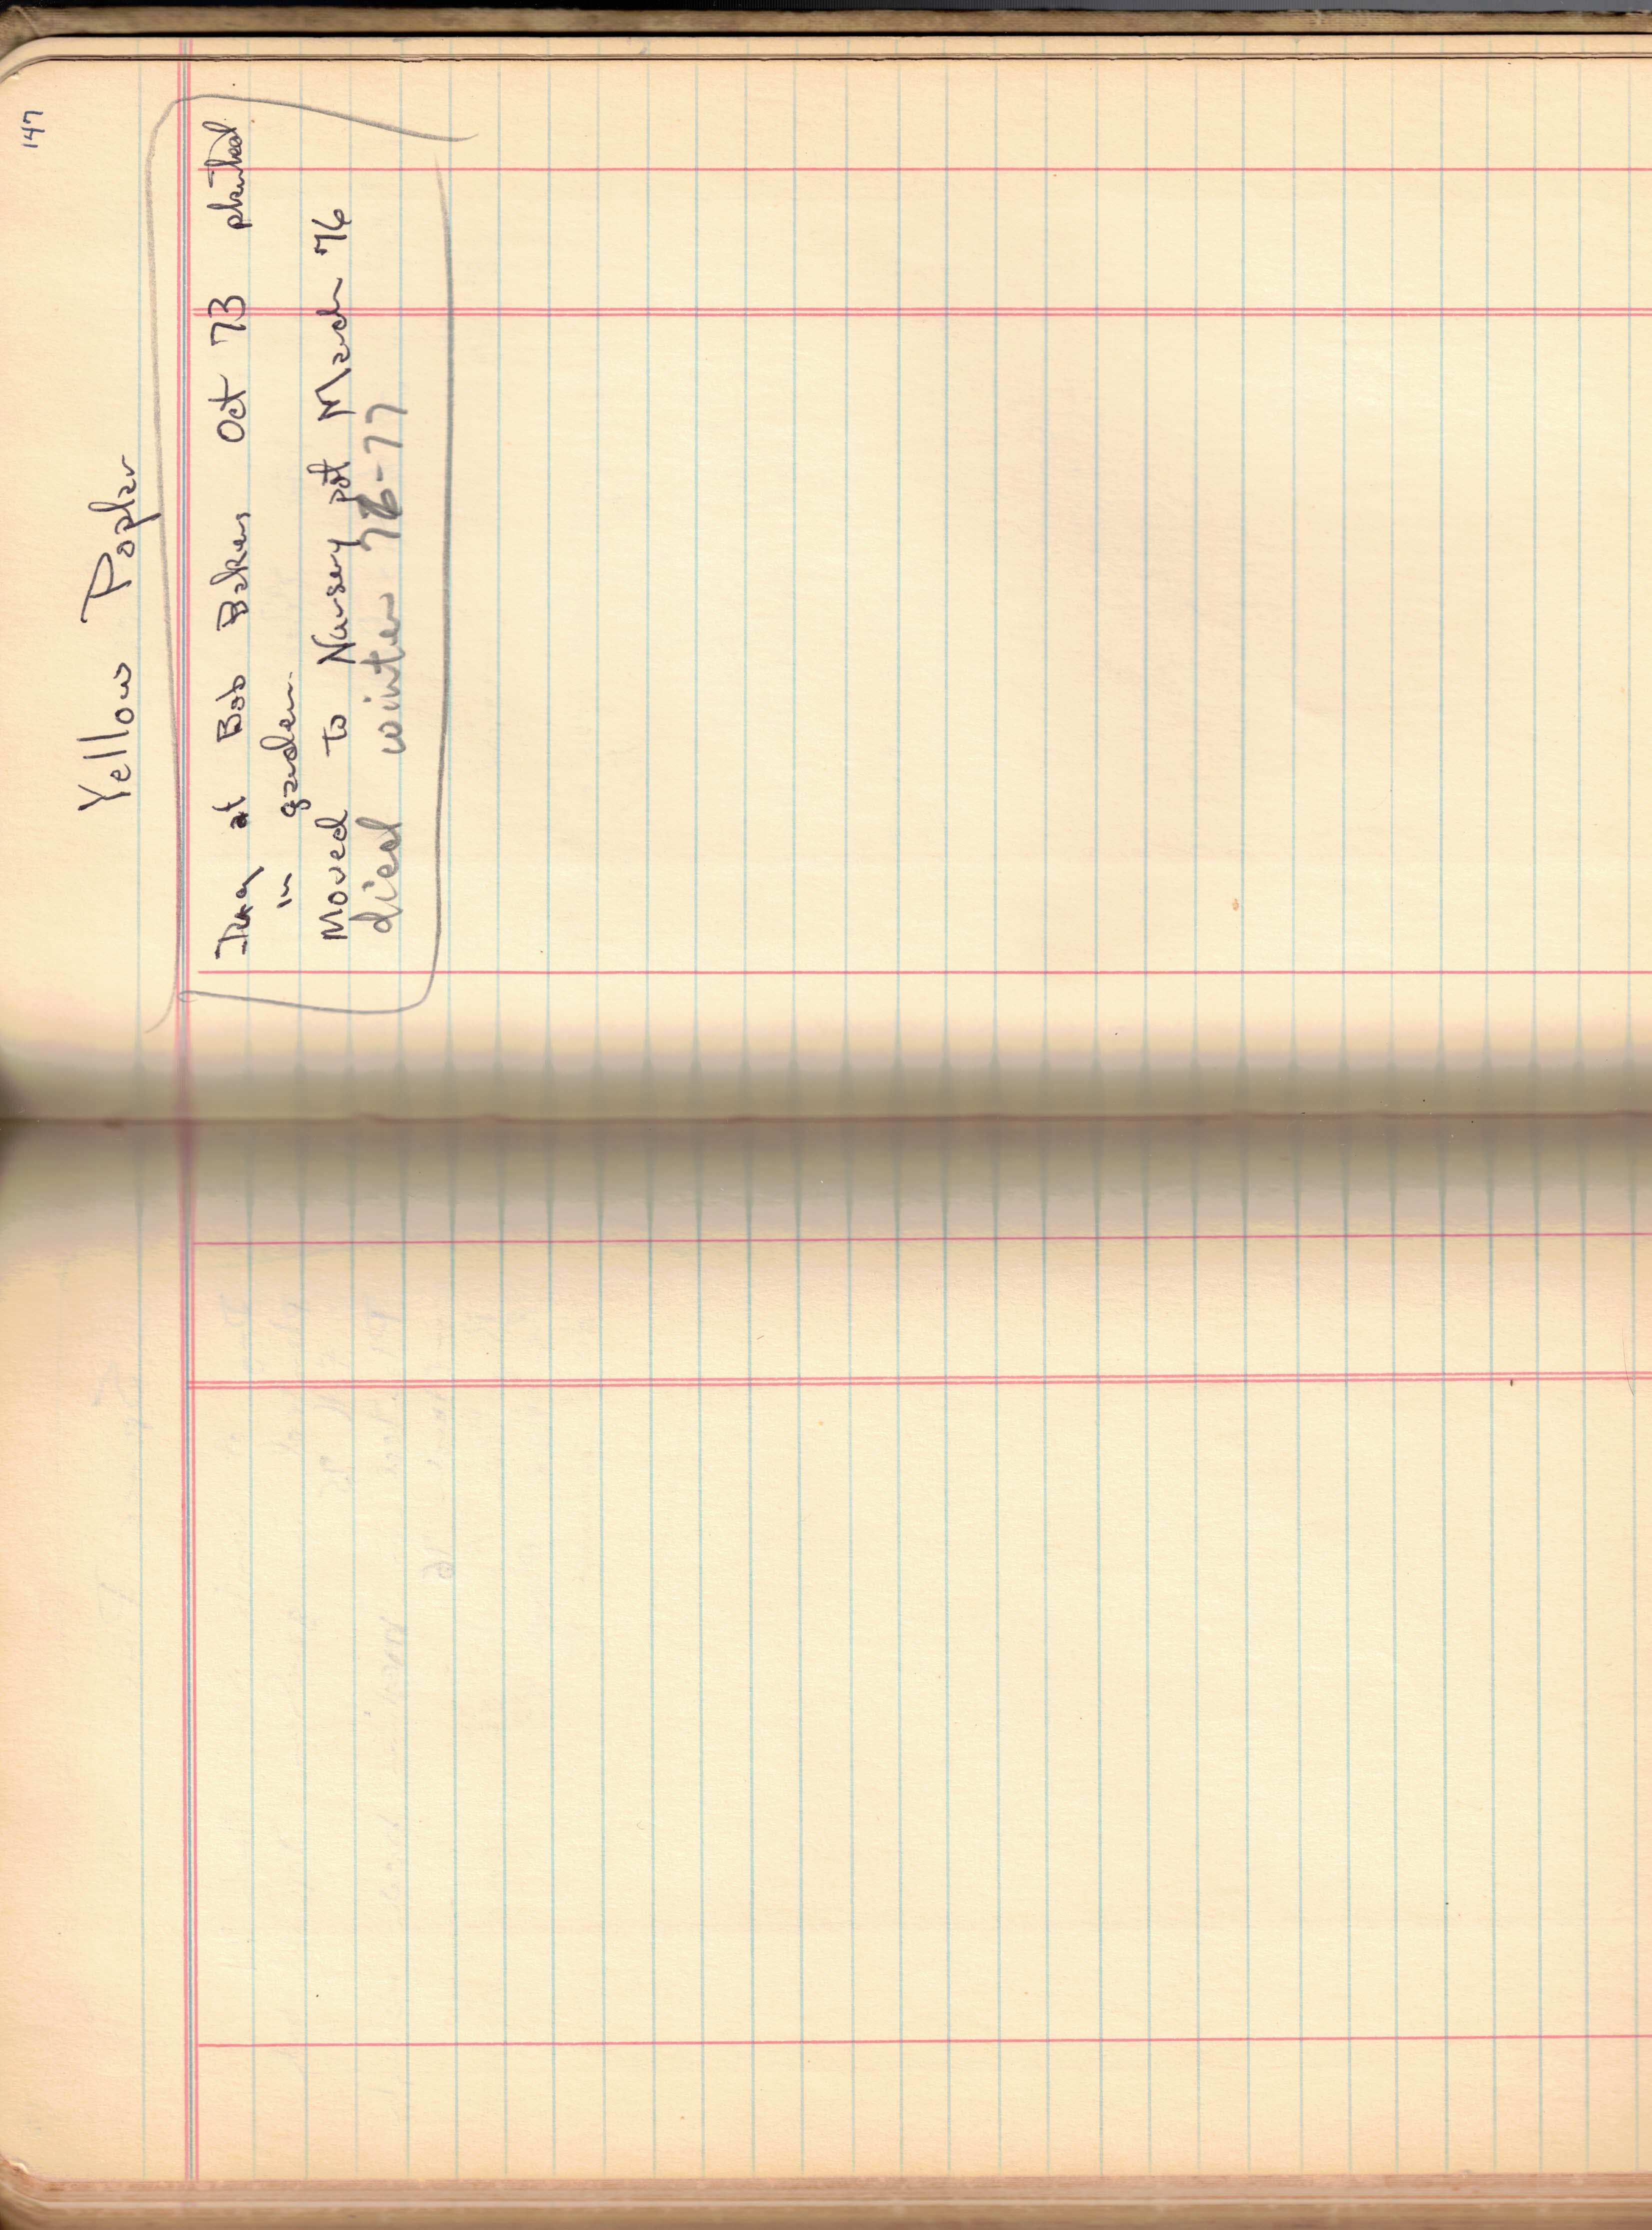 147
Yellow Poplar
Dug at Bob Bakers Oct 73 planted
in garden.
Moved to Nursery pot March 76
died winter 76-77